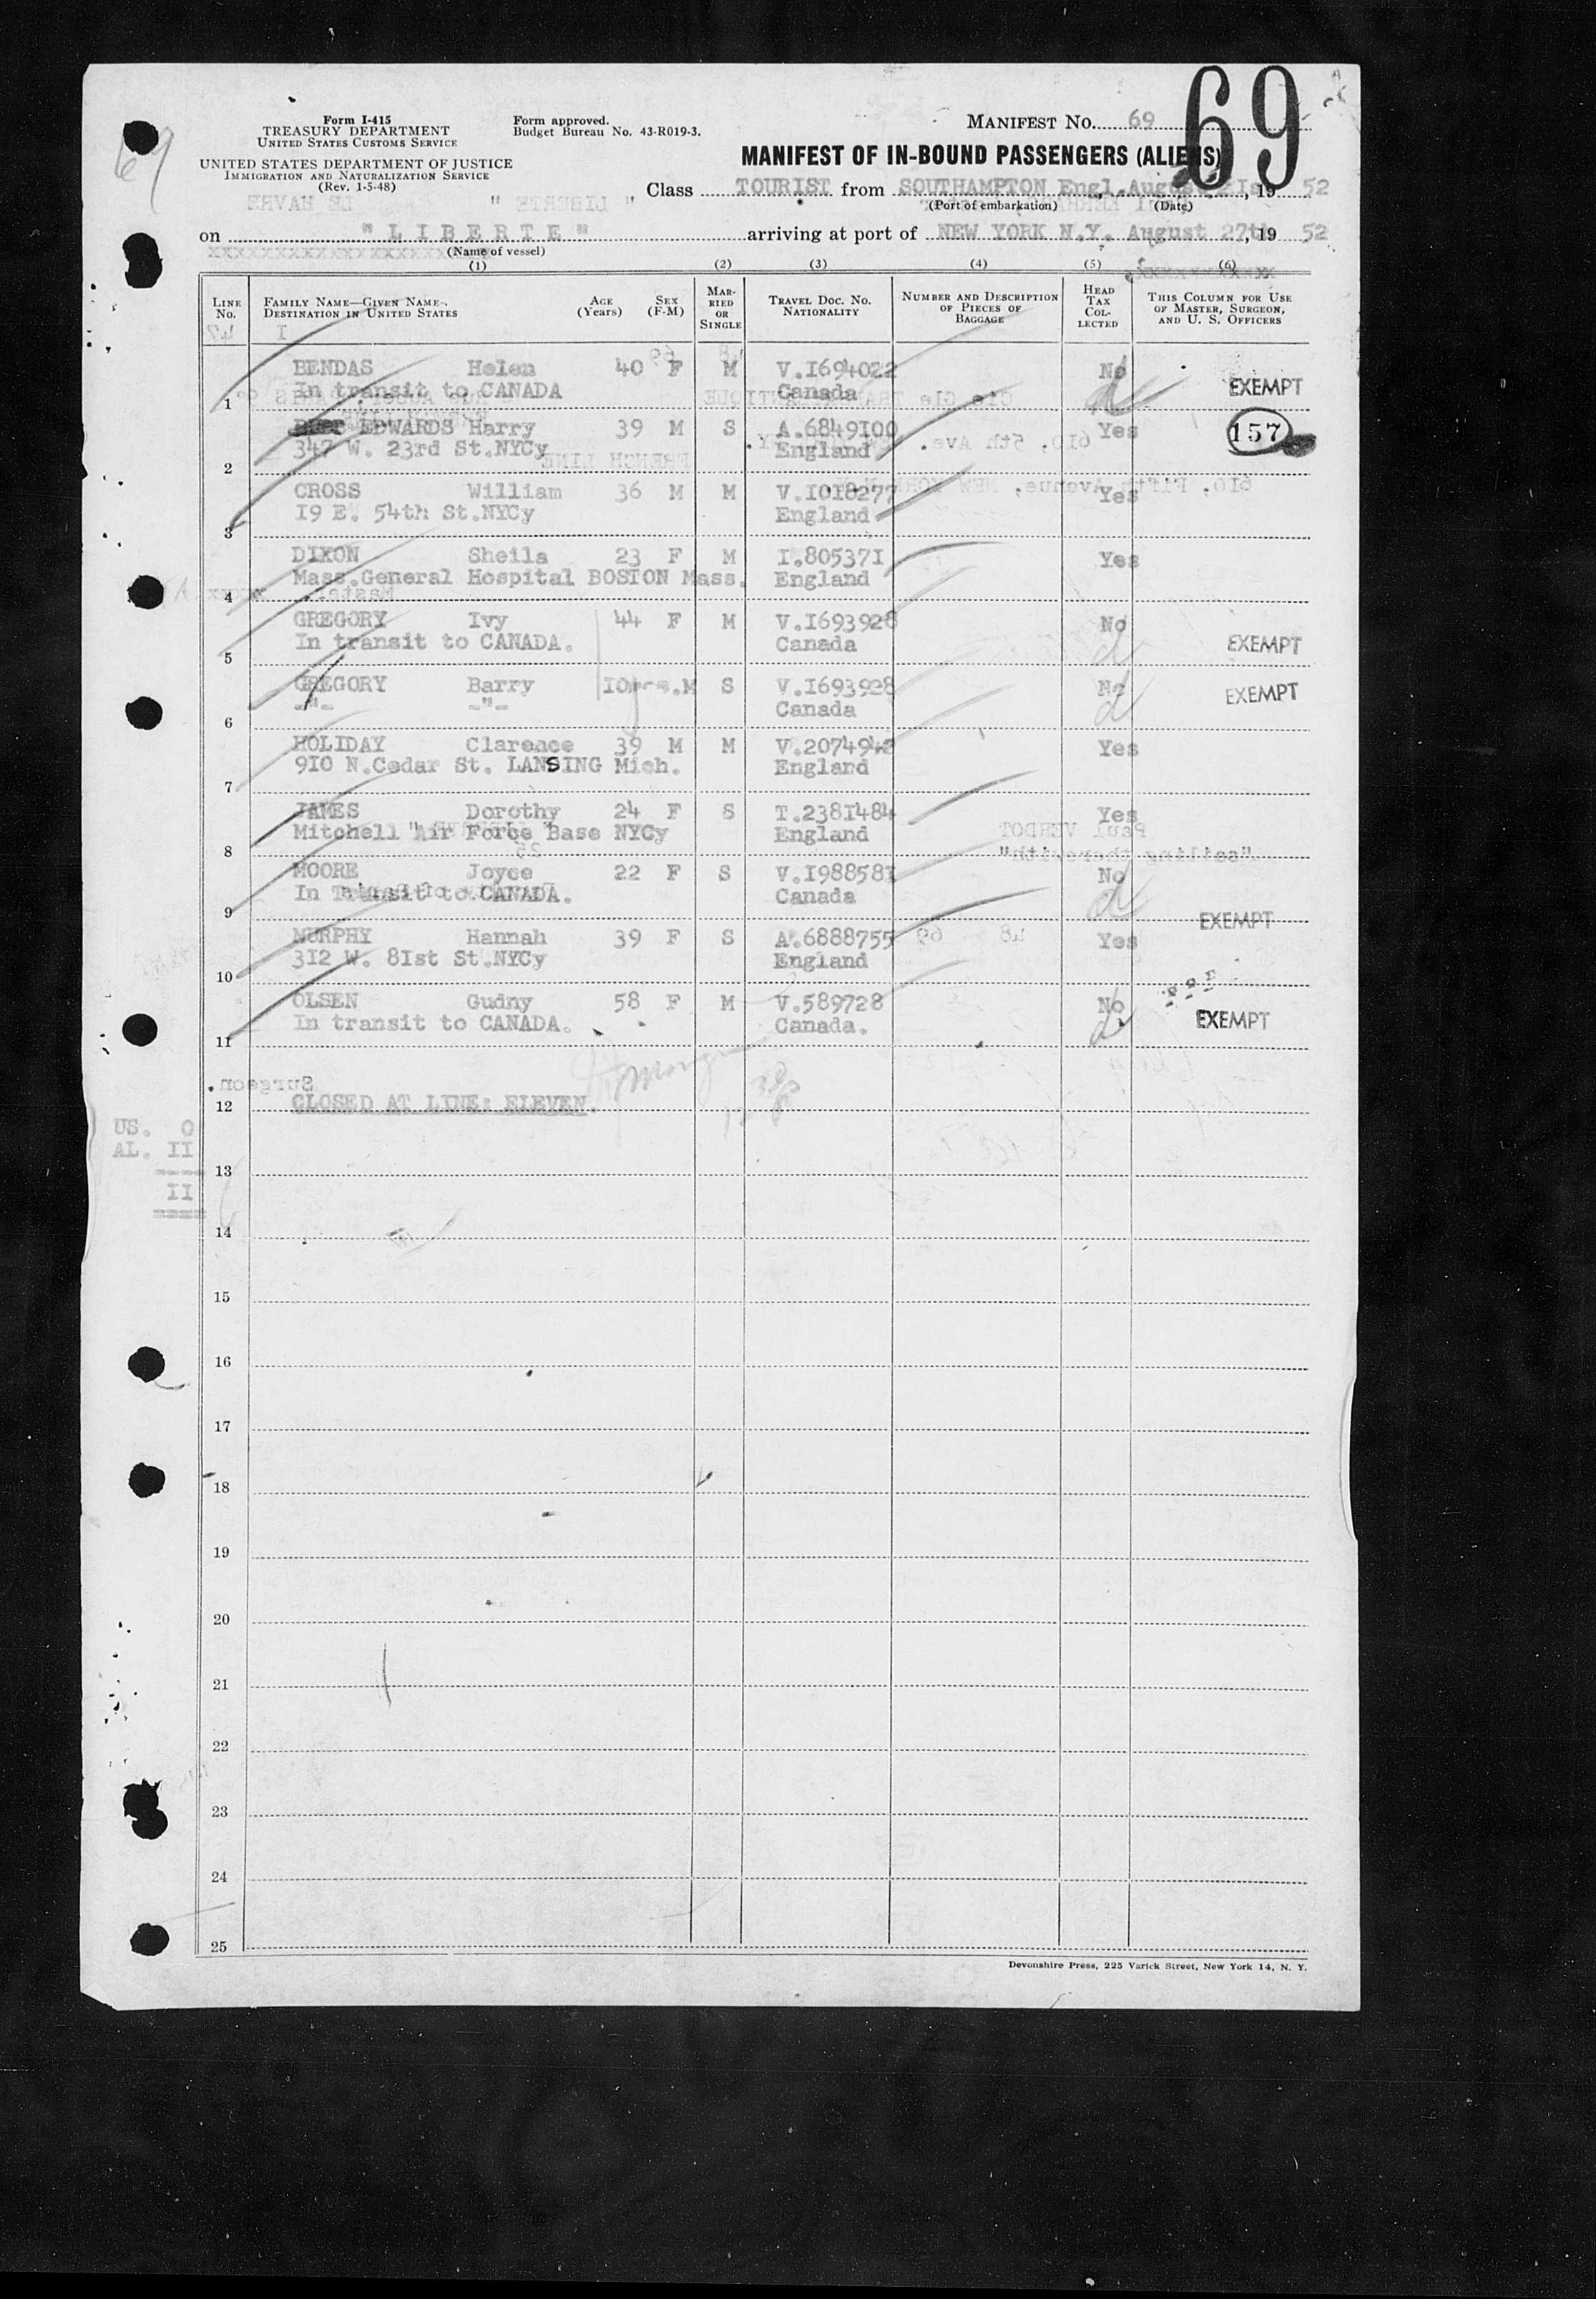 69
Form I-415
TREASURY DEPARTMENT
UNITED STATES CUSTOMS SERVICE
UNITED STATES DEPARTMENT OF JUSTICE
IMMIGRATION AND NATURALIZATION SERVICE
(Rev. 1-5-48)
Form approved.
Budget Bureau No. 43-R019-3.
MANIFEST NO. 69
MANIFEST OF IN-BOUND PASSENGERS (ALIENS)
Class TOURIST from SOUTHAMPTON Engl. August 2Ist, 19 52
(Port of embarkation) (Date)
on "LIBERTE" arriving at port of NEW YORK N.Y. August 27th, 19 52
(Name of vessel)
(1) (2) (3) (4) (5) (6)
LINE NO. FAMILY NAME—GIVEN NAME. DESTINATION IN UNITED STATES AGE (Years) SEX (F-M) MARRIED OR SINGLE TRAVEL DOC. NO. NATIONALITY NUMBER AND DESCRIPTION OF PIECES OF BAGGAGE HEAD TAX COLLECTED THIS COLUMN FOR USE OF MASTER, SURGEON, AND U. S. OFFICERS
BENDAS Helen 40 F M V.I694022 No
1 In transit to CANADA Canada EXEMPT
EDWARDS Harry 39 M S A.6849I00 Yes 157
2 347 W. 23rd St.NYCy England
CROSS William 36 M M V.I0I8277 Yes
3 I9 E. 54th St.NYCy England
DIXON Sheila 23 F M I.80537I Yes
4 Mass.General Hospital BOSTON Mass. England
GREGORY Ivy 44 F M V.I693928 No
5 In transit to CANADA. Canada EXEMPT
GREGORY Barry I0mos.M S V.I693928 No EXEMPT
6 -"- -"- Canada
HOLIDAY Clarence 39 M M V.2074942 Yes
7 9I0 N.Cedar St. LANSING Mich. England
JAMES Dorothy 24 F S T.238I484 Yes
8 Mitchell Air Force Base NYCy England
MOORE Joyce 22 F S V.I98858I No
9 In Transit to CANADA. Canada EXEMPT
MURPHY Hannah 39 F S A.6888755 Yes
10 3I2 W. 8Ist St.NYCy England
OLSEN Gudny 58 F M V.589728 No
11 In transit to CANADA. Canada. EXEMPT
12 CLOSED AT LINE: ELEVEN.
US. 0
AL. II
II
13
14
15
16
17
18
19
20
21
22
23
24
25
Devonshire Press, 225 Varick Street, New York 14, N. Y.